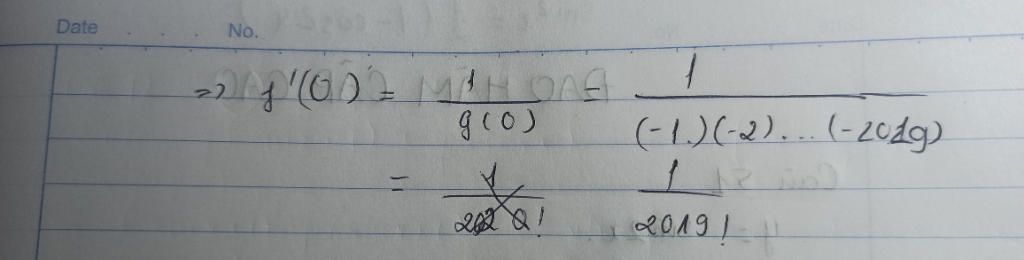 Date No.
=> f'(0) = 1/g(0) = 1/((-1.)(-2)...(-2019)
= 1/2019!